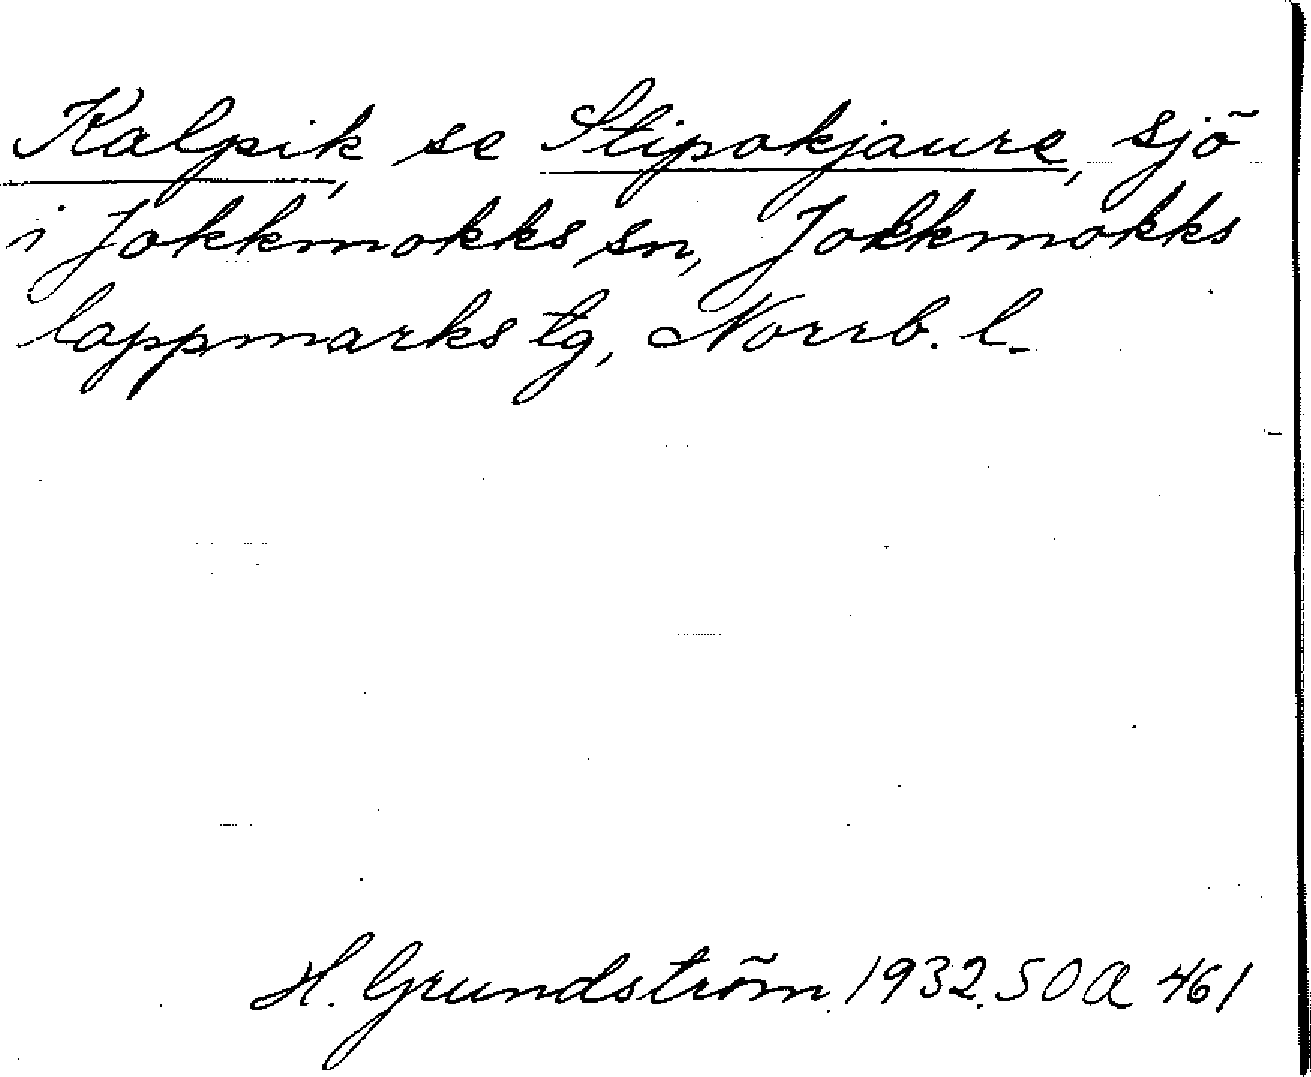 Kalpik, se Stipokjaure, sjö
i Jokkmokks sn, Jokkmokks
lappmarks tg, Norrb. l.
H. Grundström 1932. SOA 461